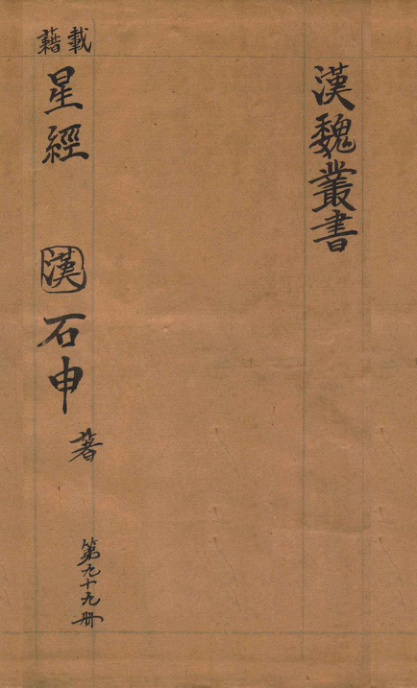 漢魏叢書
載籍
星經 漢 石申 著 第九十九册